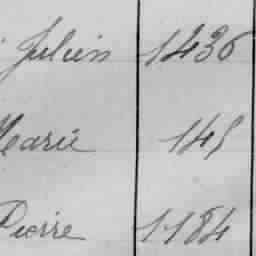 Julien 1436
Marie 145
Pierre 1184